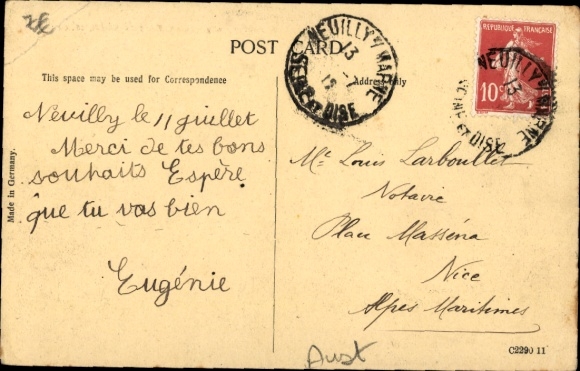 POST CARD
This space may be used for Correspondence
Address only
Neuilly le 11 juillet
Merci de tes bons
souhaits Espère
que tu vas bien
Eugénie
Made in Germany.
NEUILLY S/ MARNE
13
SEINE ET OISE
REPUBLIQUE FRANÇAISE
10
NEUILLY S/ MARNE
13
SEINE ET OISE
Me Louis Larboullet
Notaire
Place Masséna
Nice
Alpes Maritimes
C2290 11
Aust